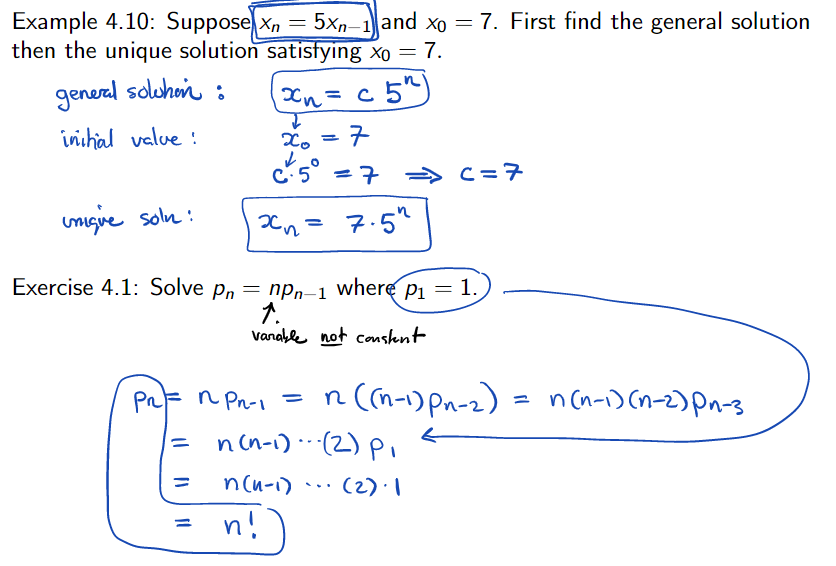 Example 4.10: Suppose xₙ = 5xₙ₋₁ and x₀ = 7. First find the general solution
then the unique solution satisfying x₀ = 7.
general solution : xₙ = c 5ⁿ
initial value : x₀ = 7
c·5⁰ = 7 ⟹ c = 7
unique soln : xₙ = 7·5ⁿ
Exercise 4.1: Solve pₙ = npₙ₋₁ where p₁ = 1.
variable not constant
pₙ = n pₙ₋₁ = n((n-1)pₙ₋₂) = n(n-1)(n-2)pₙ₋₃
= n(n-1)···(2) p₁
= n(n-1) ··· (2)·1
= n!